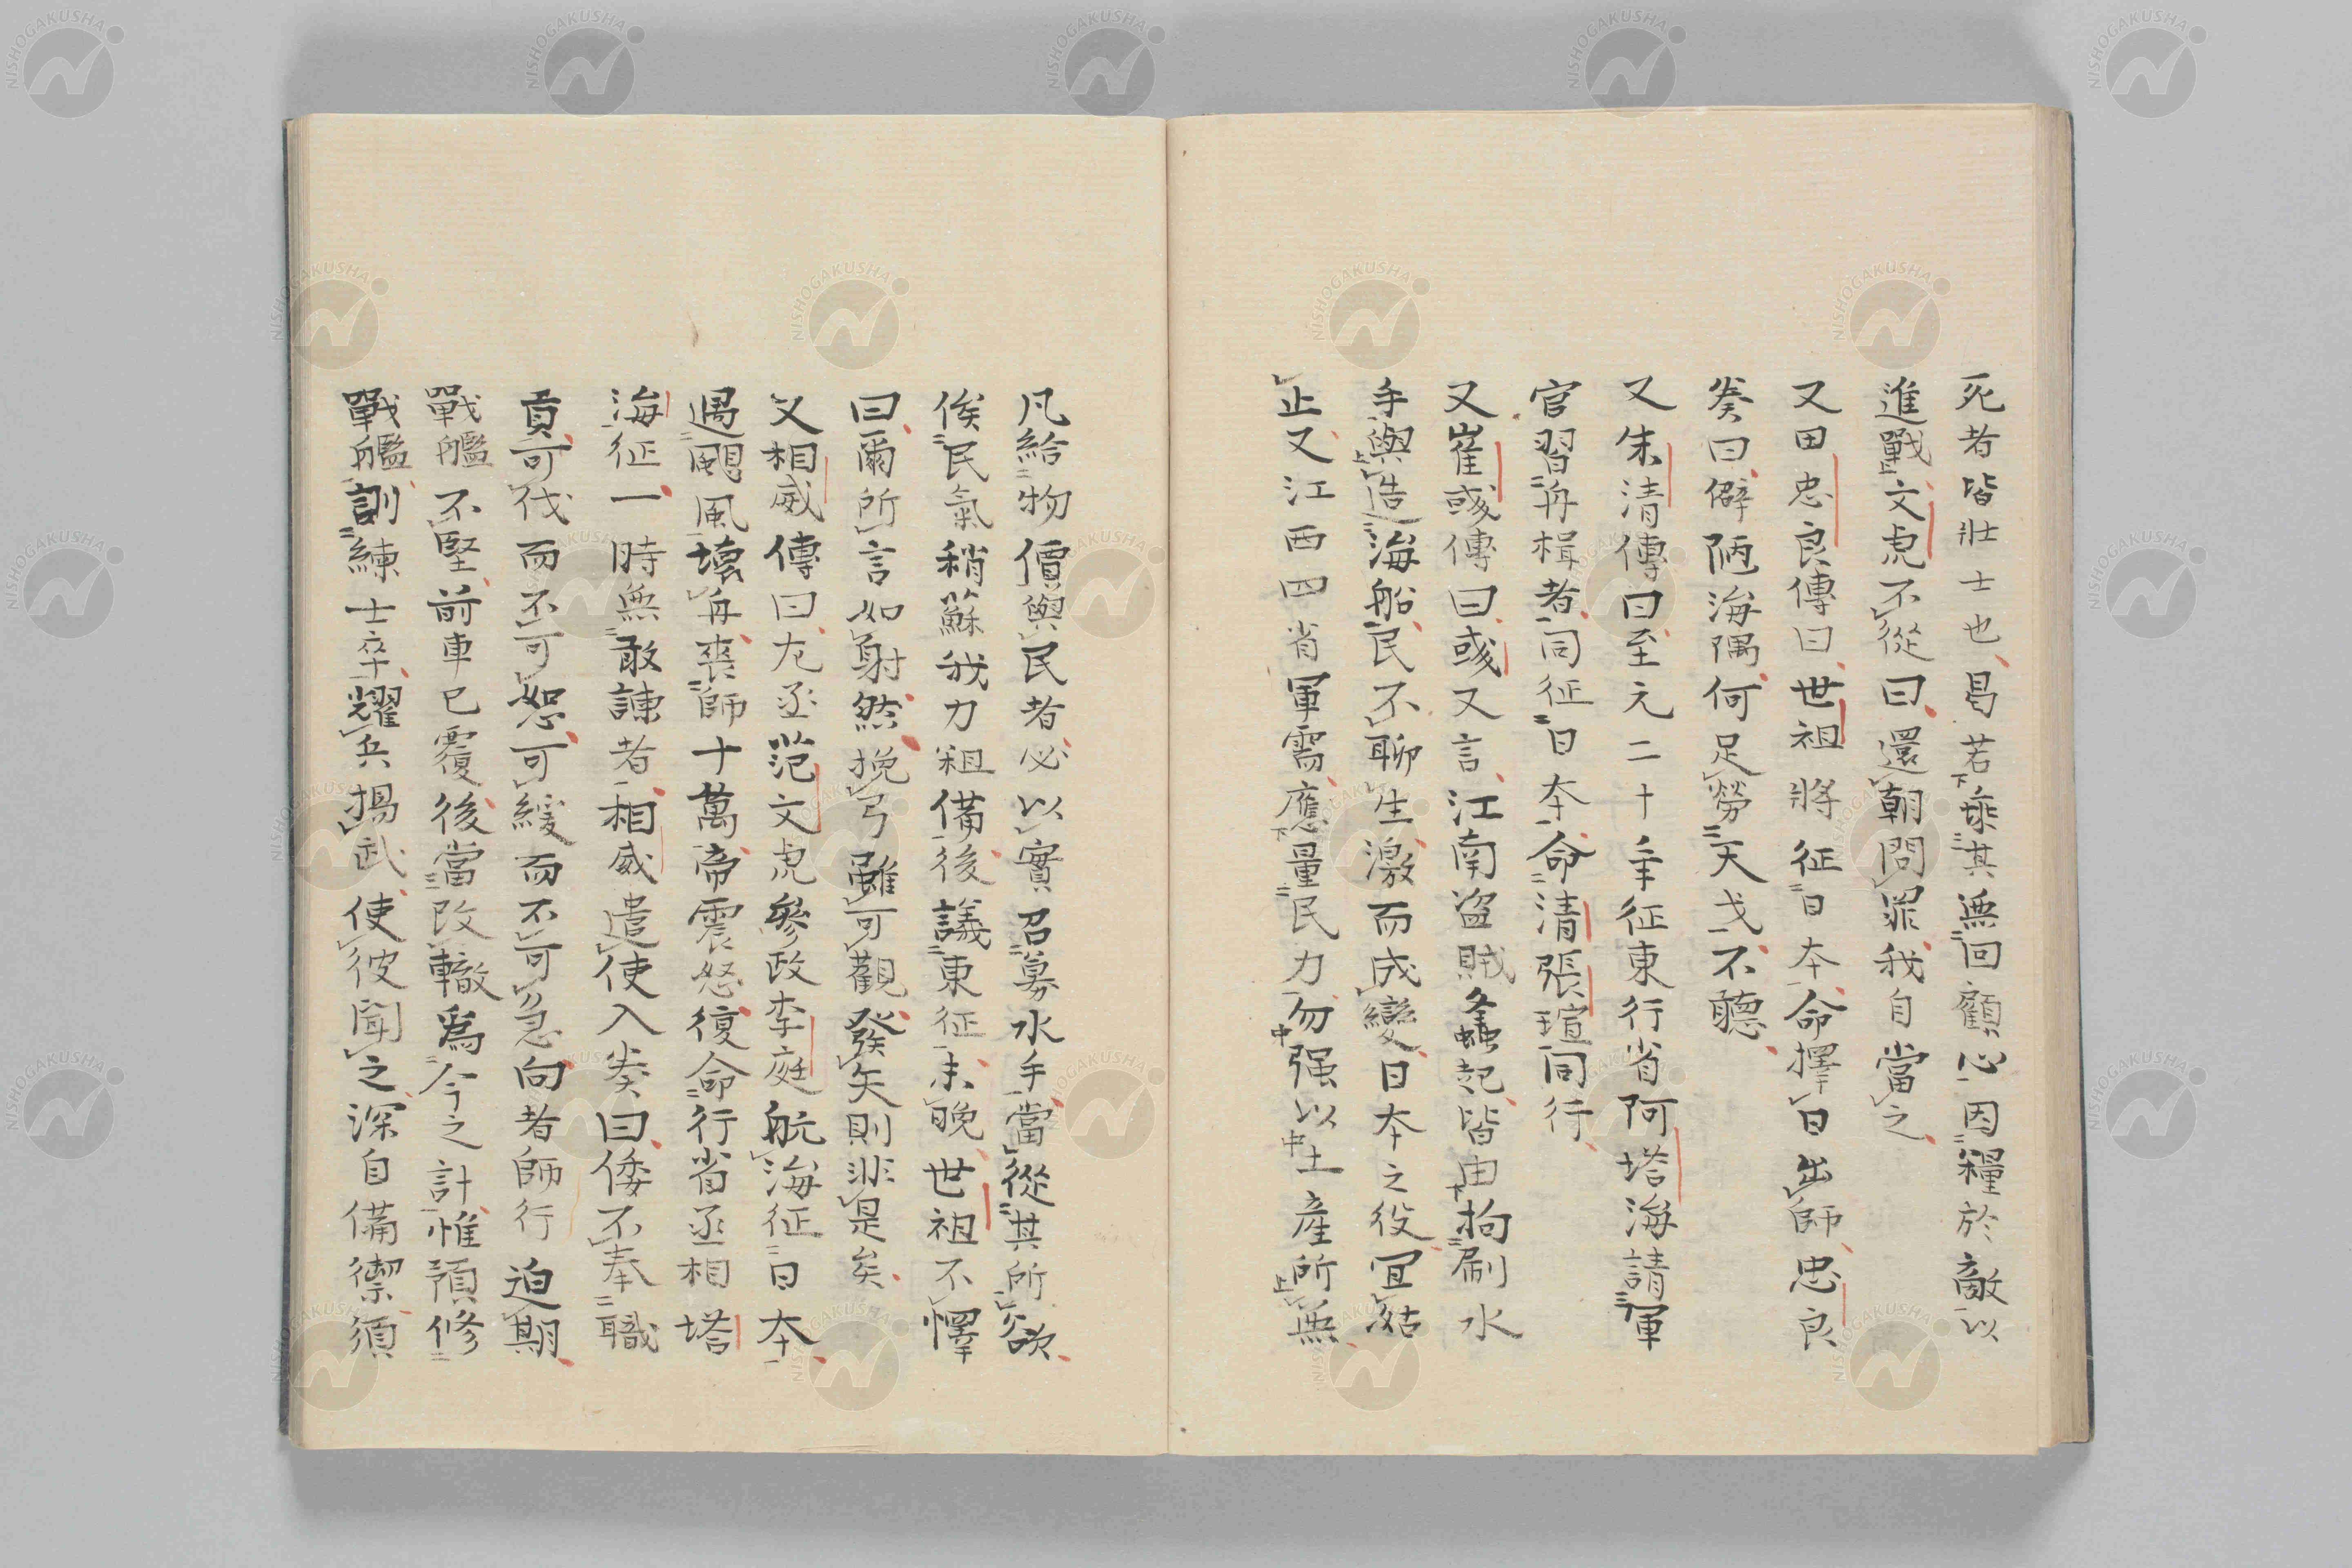 死者皆壯士也曷若乗其無回顧心因糧於敵以
進戰文虎不從曰還朝問罪我自當之
又田忠良傳曰世祖將征日本命擇日出師忠良
奏曰僻陋海隅何足勞天戈不聽
又朱清傳曰至元二十年征東行省阿塔海請軍
官習舟楫者同征日本命清張瑄同行
又崔彧傳曰彧又言江南盜賊蠭起皆由拘刷水
手與造海船民不聊生激而成變日本之役宜姑
止又江西四省軍需應量民力勿强以土產所無
凡給物價與民者必以實召募水手當從其所欲
俟民氣稍蘇我力粗備後議東征未晚世祖不懌
曰爾所言如射然挽弓雖可觀發矢則非是矣
又相威傳曰左丞范文虎參政李庭航海征日本
遇颶風壞舟喪師十萬帝震怒復命行省丞相塔
海征一時無敢諫者相威遣使入奏曰倭不奉職
貢可伐而不可恕可緩而不可急向者師行迫期
戰艦不堅前車已覆後當改轍爲今之計惟預修
戰艦訓練士卒耀兵揚武使彼聞之深自備禦須